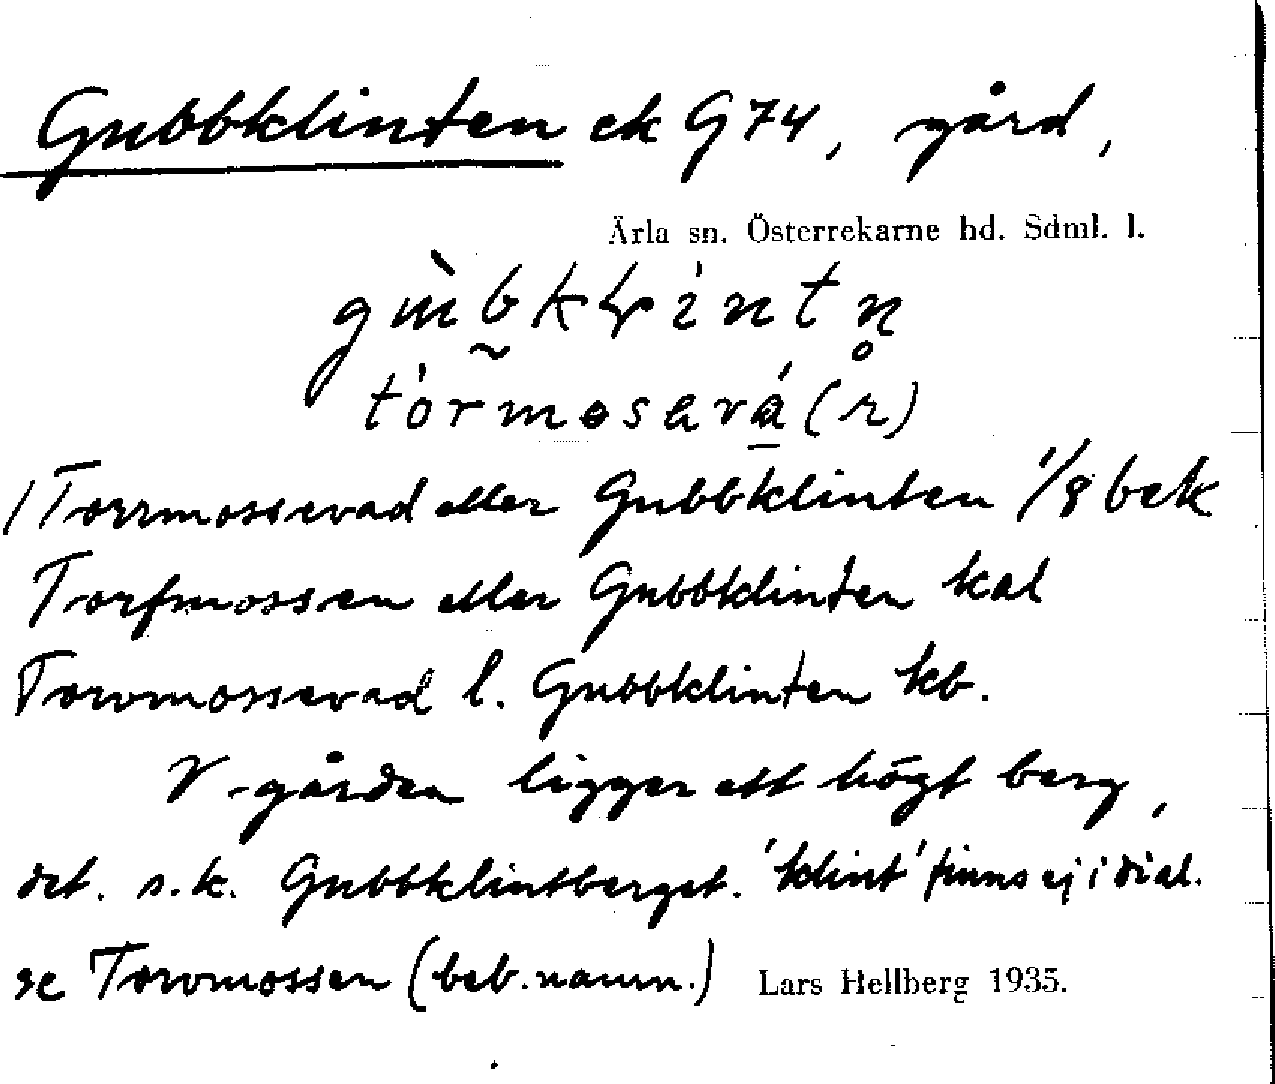 Gubbklinten ek G 74, gård,
Ärla sn. Österrekarne hd. Sdml. l.
Torrmossevad eller Gubbklinten 1/8 bek
Torfmossen eller Gubbklinten kal
Torvmossevad l. Gubbklinten kb.
V. gården ligger ett högt berg,
det. s.k. Gubbklintberget. 'klint' finns ej i dial.
se Torvmossen (beb.namn.) Lars Hellberg 1935.